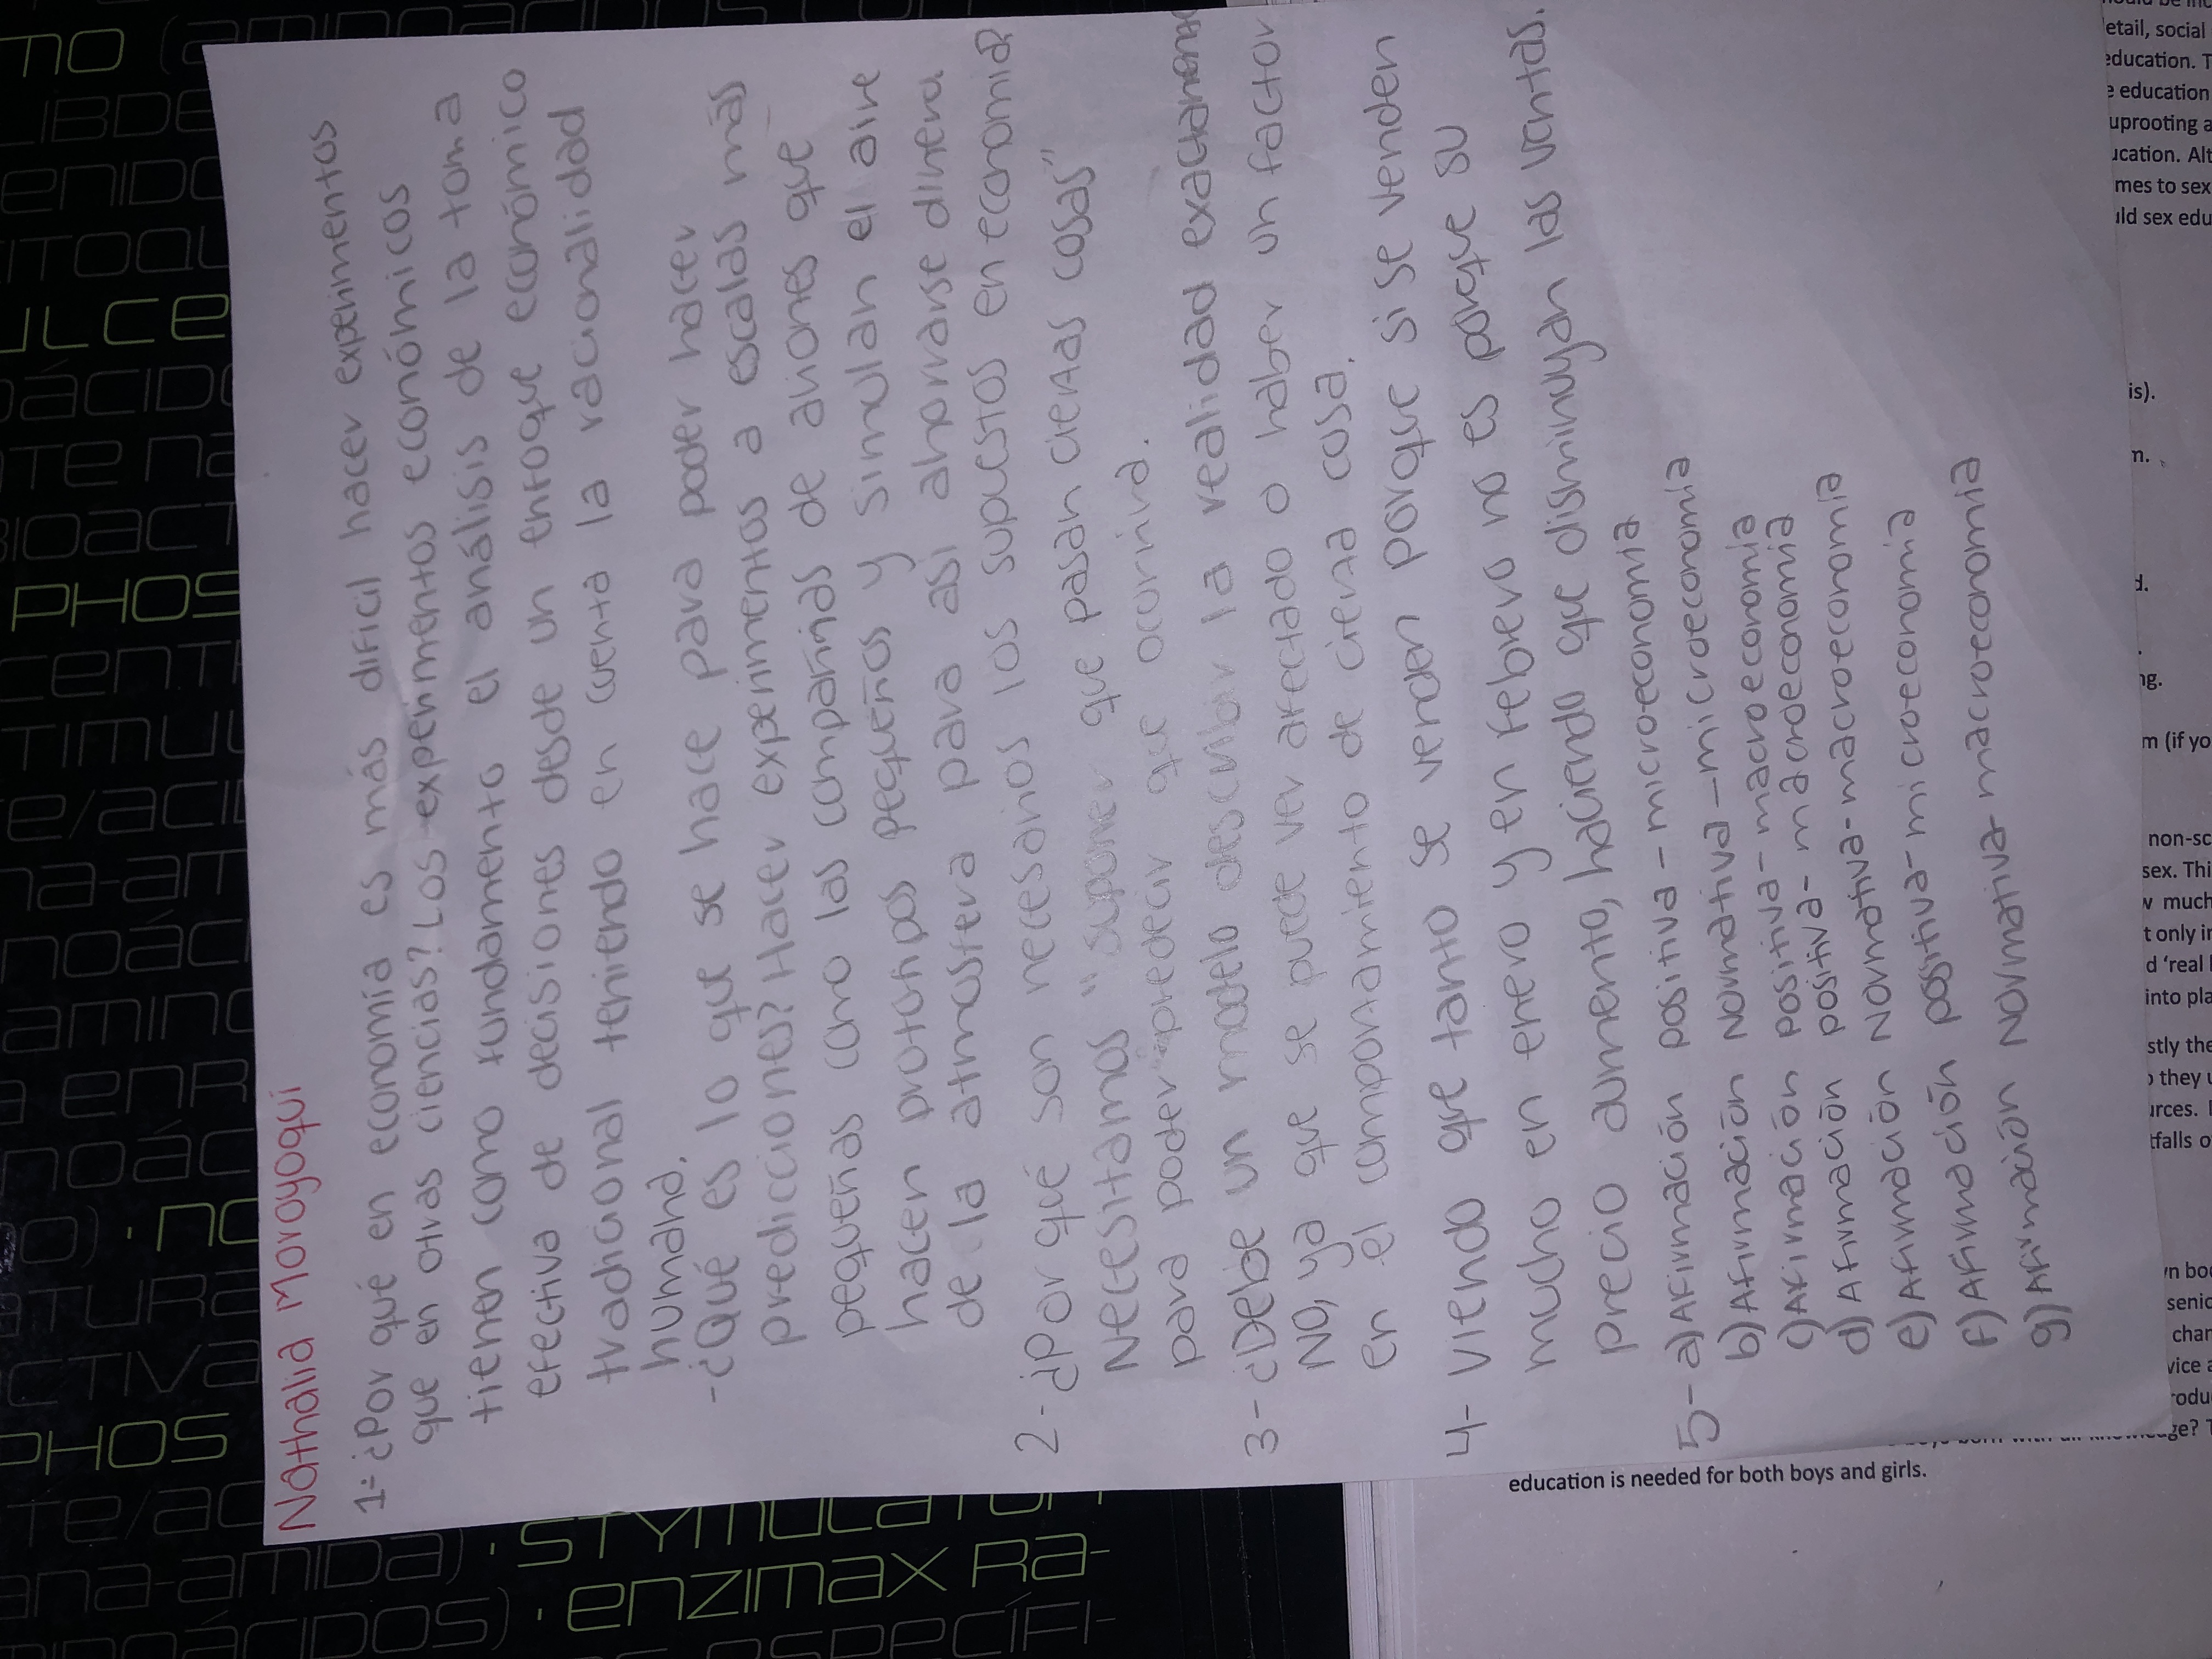 Nathalia Moroyoqui
1- ¿Por qué en economía es más difícil hacer experimentos
que en otras ciencias? Los experimentos económicos
tienen como fundamento el análisis de la toma
efectiva de decisiones desde un enfoque económico
tradicional teniendo en cuenta la racionalidad
humana.
- ¿Qué es lo que se hace para poder hacer
predicciones? Hacer experimentos a escalas más
pequeñas como las compañías de aviones que
hacen prototipos pequeños y simulan el aire
de la atmosfera para asi ahorrarse dinero
2- ¿Por qué son necesarios los supuestos en economia?
Necesitamos "suponer que pasan ciertas cosas"
para poder predecir que ocurrirá.
3- ¿Debe un modelo describir la realidad exactamente
No, ya que se puede ver afectado o haber un factor
en el comportamiento de cierta cosa.
4- Viendo que tanto se venden porque si se venden
mucho en enero y en febrero no es porque su
precio aumento, haciendo que disminuyan las ventas.
5- a) Afirmación positiva - microeconomia
b) Afirmación Normativa - microeconomia
c) Afirmación positiva - macroeconomia
d) Afirmación positiva - macroeconomia
e) Afirmación Normativa - macroeconomia
f) Afirmación positiva - microeconomia
g) Afirmación Normativa - macroeconomia
etail, social
education. T
e education
uprooting a
ucation. Alt
mes to sex
uld sex edu
is).
n.
d.
ng.
m (if yo
non-sc
sex. Thi
w much
t only in
d 'real l
into pla
stly the
they u
urces. I
tfalls o
senio
char
vice a
rodu
ge? T
education is needed for both boys and girls.
LIBDE
ULCE
PHOS
PHOS
CTIVA
STYMULATOR
ana-amida)
· enzimax Ra-